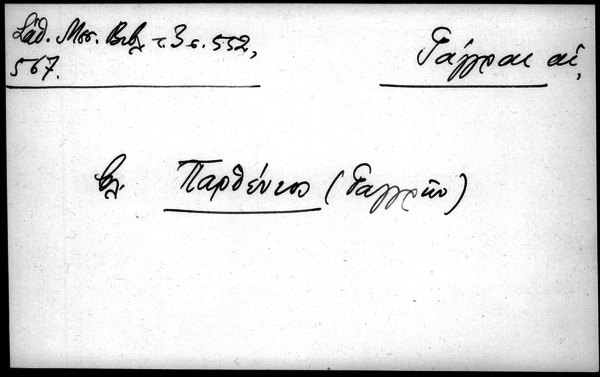 Σάθ. Μεσ. Βιβ. τ. 3 σ. 552,
567.
Γάγγραι αἱ,
βλ. Παρθένιος (Γαγγρῶν)